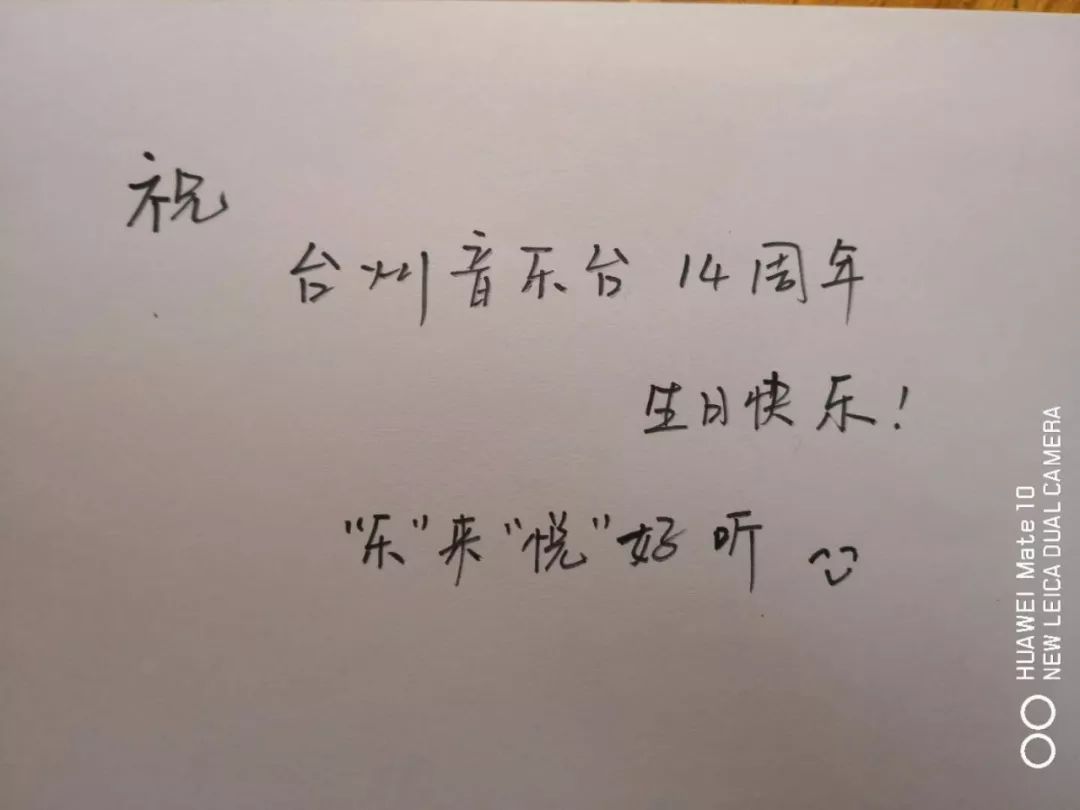 祝
台州音乐台 14周年
生日快乐!
"乐"来"悦"好听
HUAWEI Mate 10
NEW LEICA DUAL CAMERA